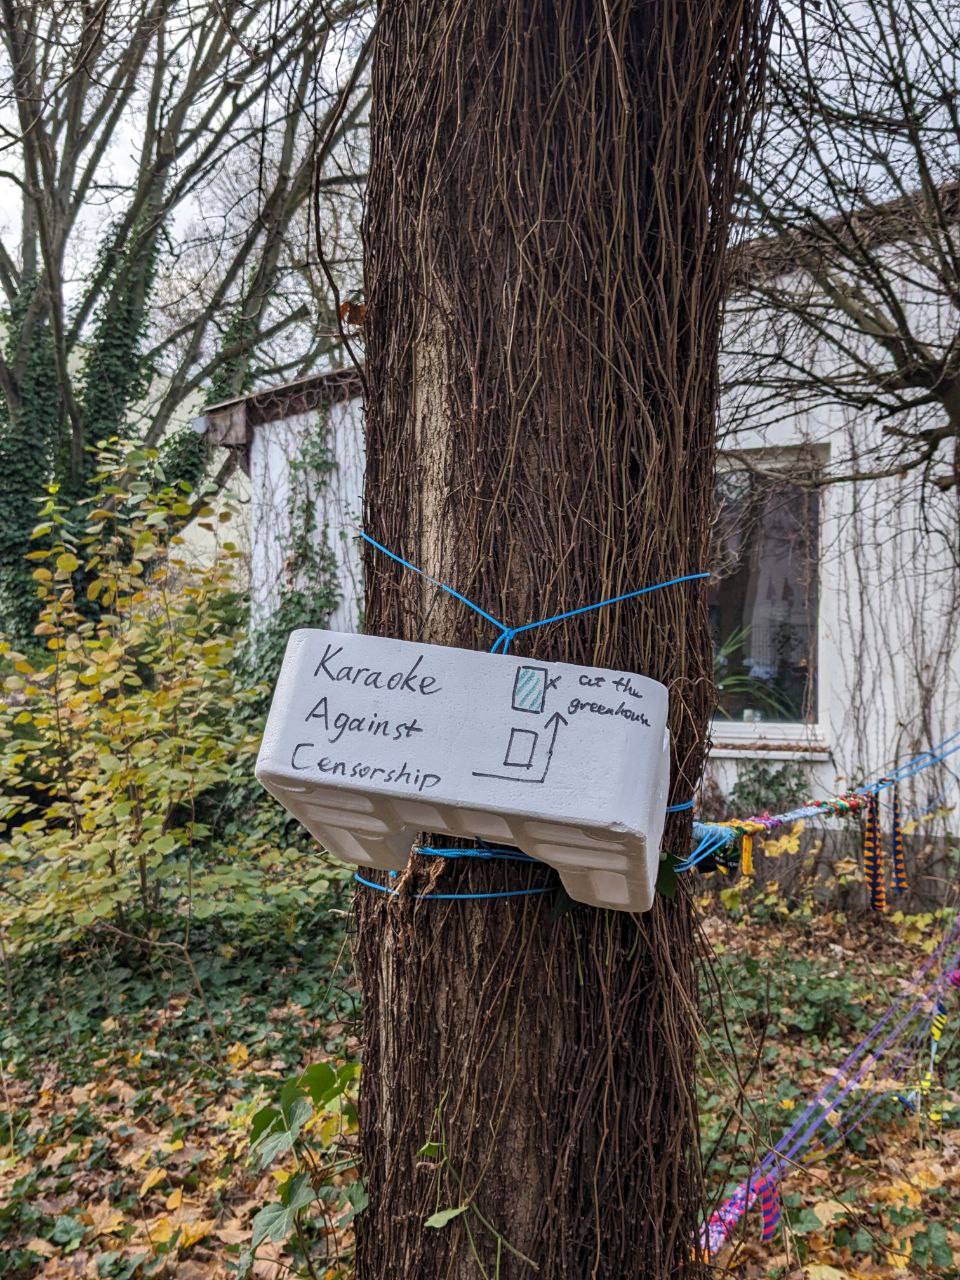 Karaoke
Against
Censorship
x at the
greenhouse